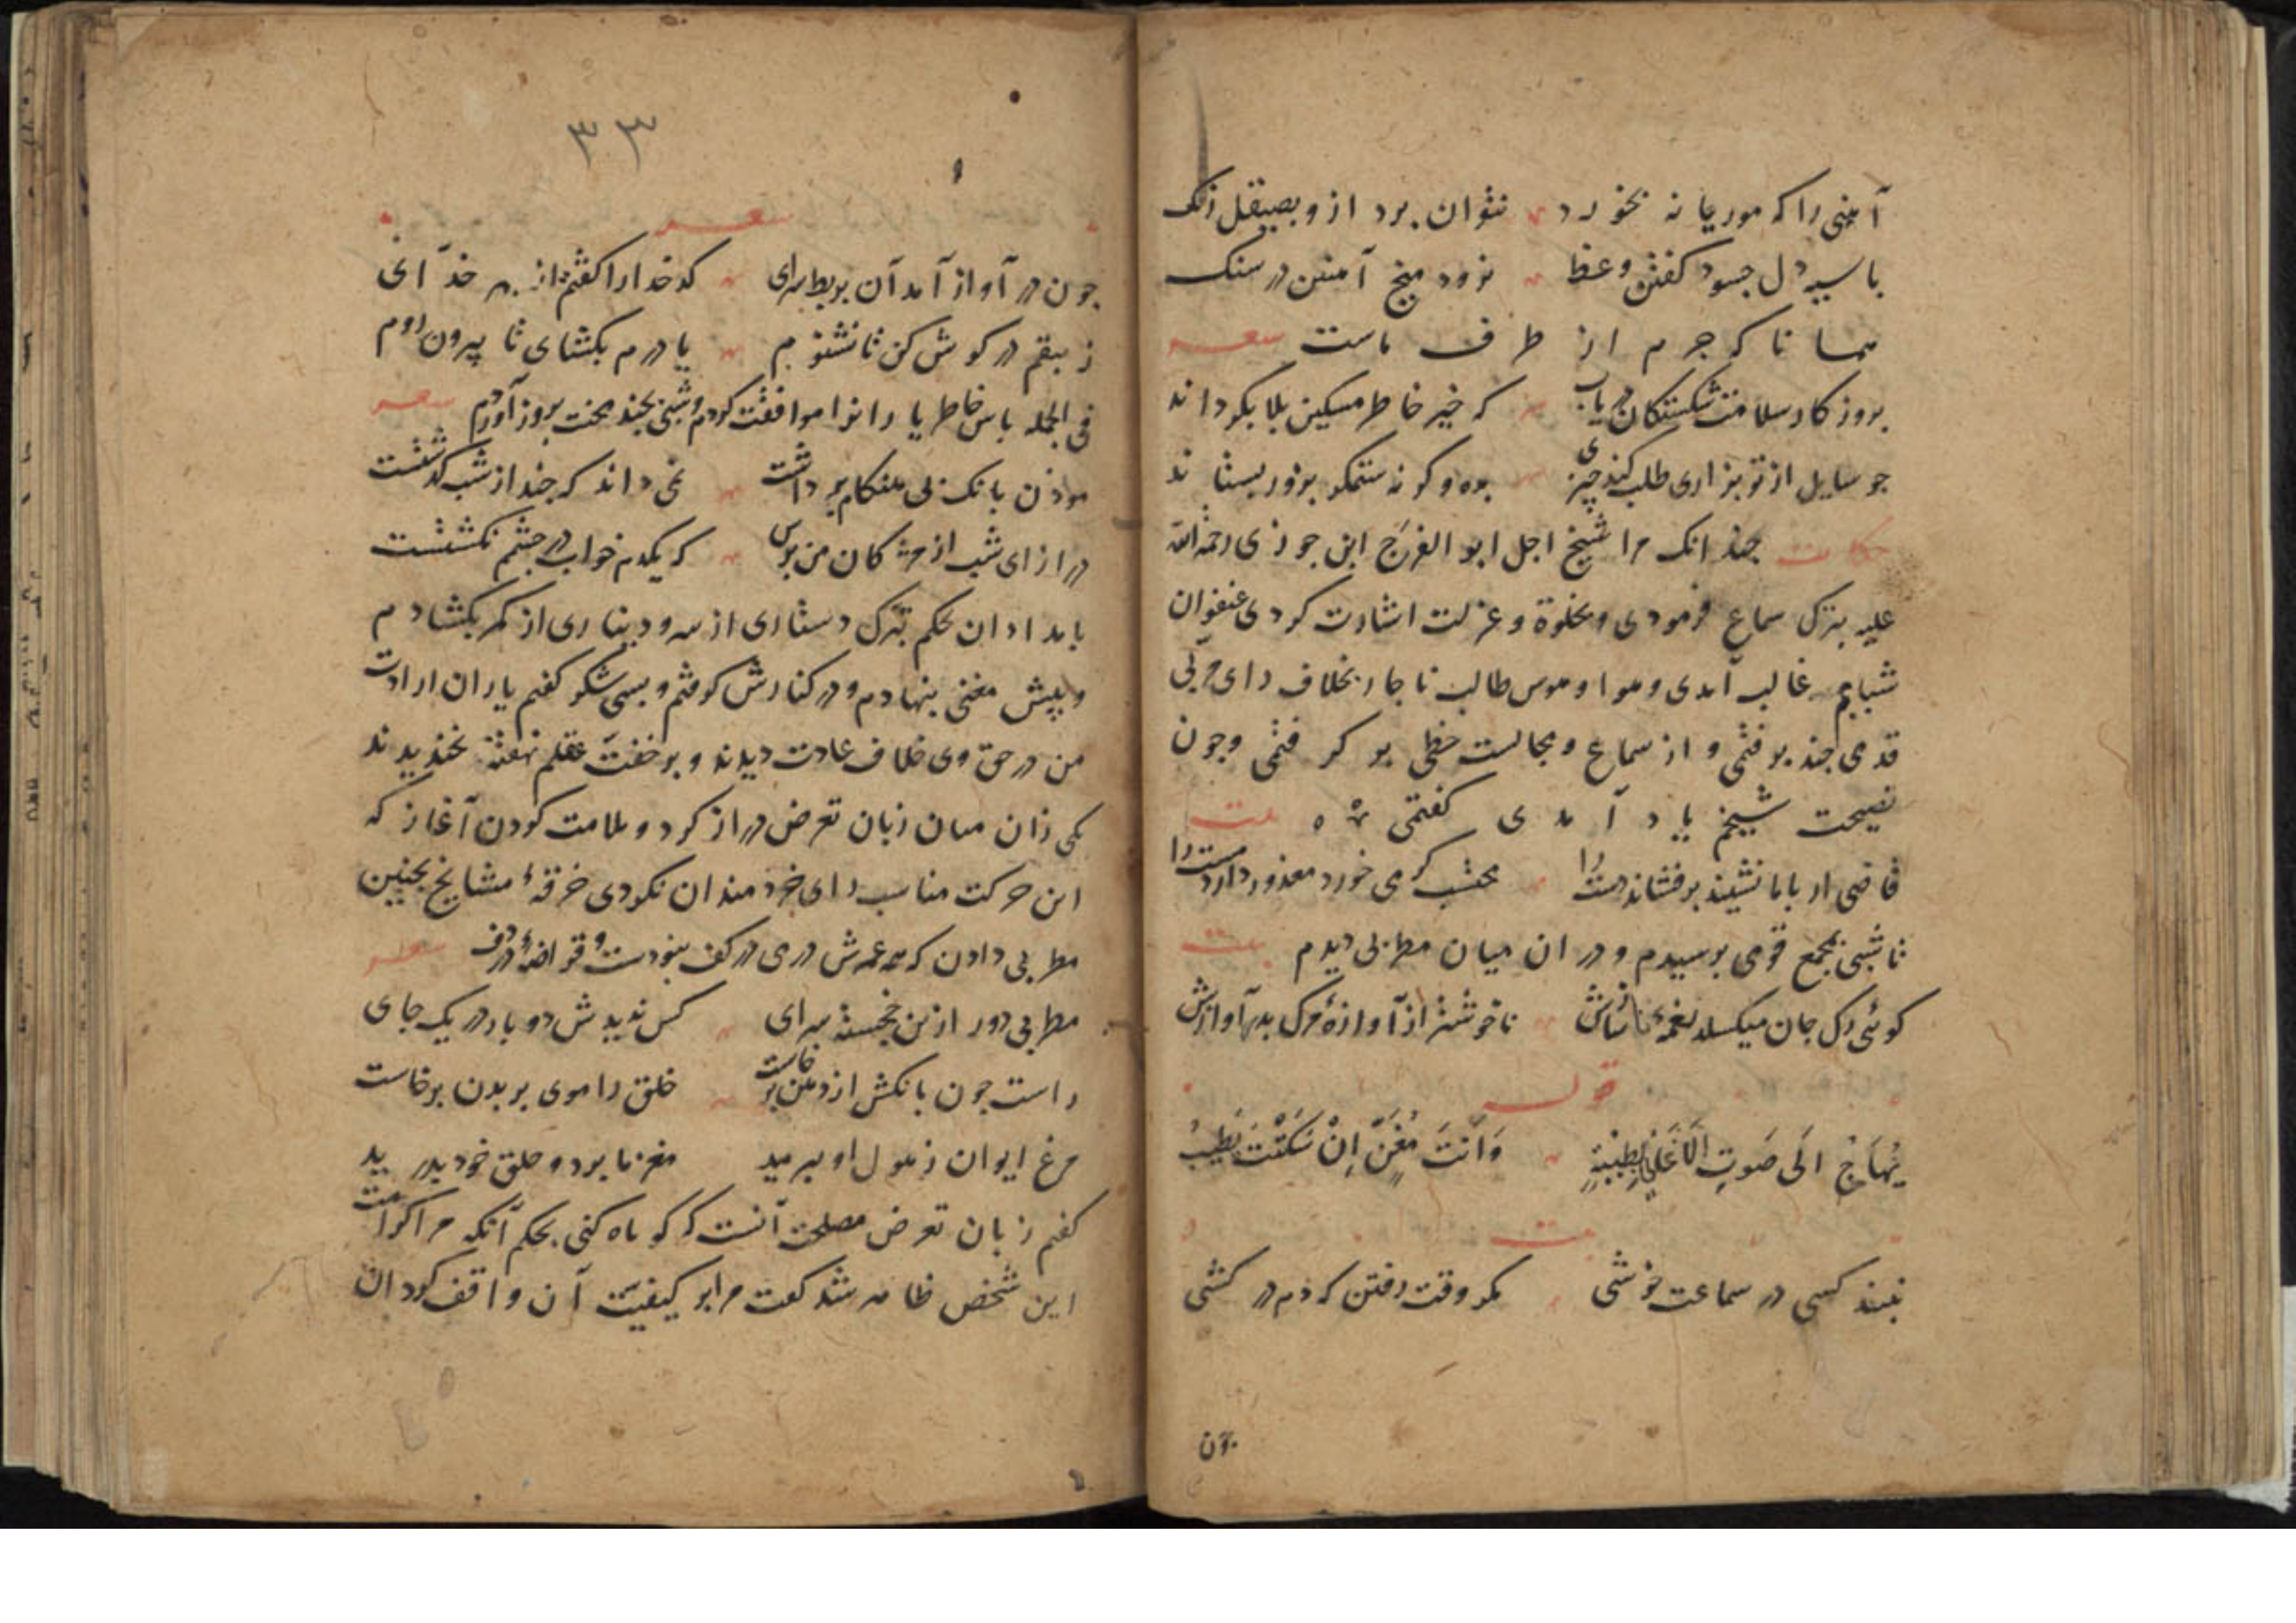 آهنی را که موریانه بخورد نتوان برد ازو بصیقل زنک
با سیه دل جسود کفتن وعظ نرود میخ آهنین در سنک
همانا که جرم از طرف ماست شعر
بروزکار سلامت شکستکان دریاب که خیر خاطر مسکین بلا بکرداند
جو سایل از تو بزاری طلب کند چیزی بده وکرنه ستمکر بزور بستاند
حکایت جندانک مرا شیخ اجل ابو الفرج ابن جوزی رحمة الله
علیه بترک سماع فرمودی و بخلوة و عزلت اشارت کردی عنفوان
شبابم غالب آمدی و هوا و هوس طالب ناجار بخلاف رای مربی
قدمی جند برفتمی و از سماع و مجالست حظی بر کرفتمی وجون
نصیحت شیخم یاد آمدی کفتمی بیت
قاضی ار باما نشیند برفشاند دست را محتسب کر می خورد معذور دارد مست را
تا شبی بمجمع قومی برسیدم و در ان میان مطربی دیدم بیت
کوئی رک جان میکسلد نغمۀ ناسازش ناخوشتر از آوازۀ مرک بدر آوازش
قول
یُهَاجُ الَی صَوتِ الاَغَانِی لِطِیْبِهِ وَاَنْتَ مُغَنٍّ اِنْ سَکَتَّ نَطِیبُ
بیت
نبیند کسی در سماعت خوشی مکر وقت رفتن که دم در کشی
جون
٣٣
شعر
جون در آواز آمد آن بربط سرای کدخدا را کفتم از بهر خدآی
زیبقم در کوش کن تا نشنوم یا درم بکشای تا بیرون روم
فی الجمله باس خاطر یارانرا موافقت کردم و شبی بجند محنت بروز آوردم شعر
موذن بانک بی هنکام برداشت نمی داند که جند از شب کذشتست
درازای شب از مژکان من برس که یکدم خواب در جشم نکشتست
بامدادان بحکم تبرک دستاری از سر و دیناری از کمر بکشادم
و پیش مغنی بنهادم و در کنارش کرفتم و بسی شکر کفتم یاران ارادت
من در حق وی خلاف عادت دیدند و بر خفت عقلم نهفته بخندیدند
یکی زان میان زبان تعرض دراز کرد و ملامت کردن آغاز که
این حرکت مناسب رای خردمندان نکردی خرقۀ مشایخ بجنین
مطربی دادن که همه عمرش درمی در کف نبودست و قراضۀ در دف شعر
مطربی دور ازین خجسته سرای کس ندیدش دو بار در یک جای
راست جون بانکش از دهن برخاست خلق را موی بر بدن برخاست
مرغ ایوان ز هول او برمید مغز ما برد و حلق خود بدرید
کفتم زبان تعرض مصلحت آنست که کوتاه کنی بحکم آنکه مرا کرامت
این شخص ظاهر شد کفت مرا بر کیفیت آن واقف کردان